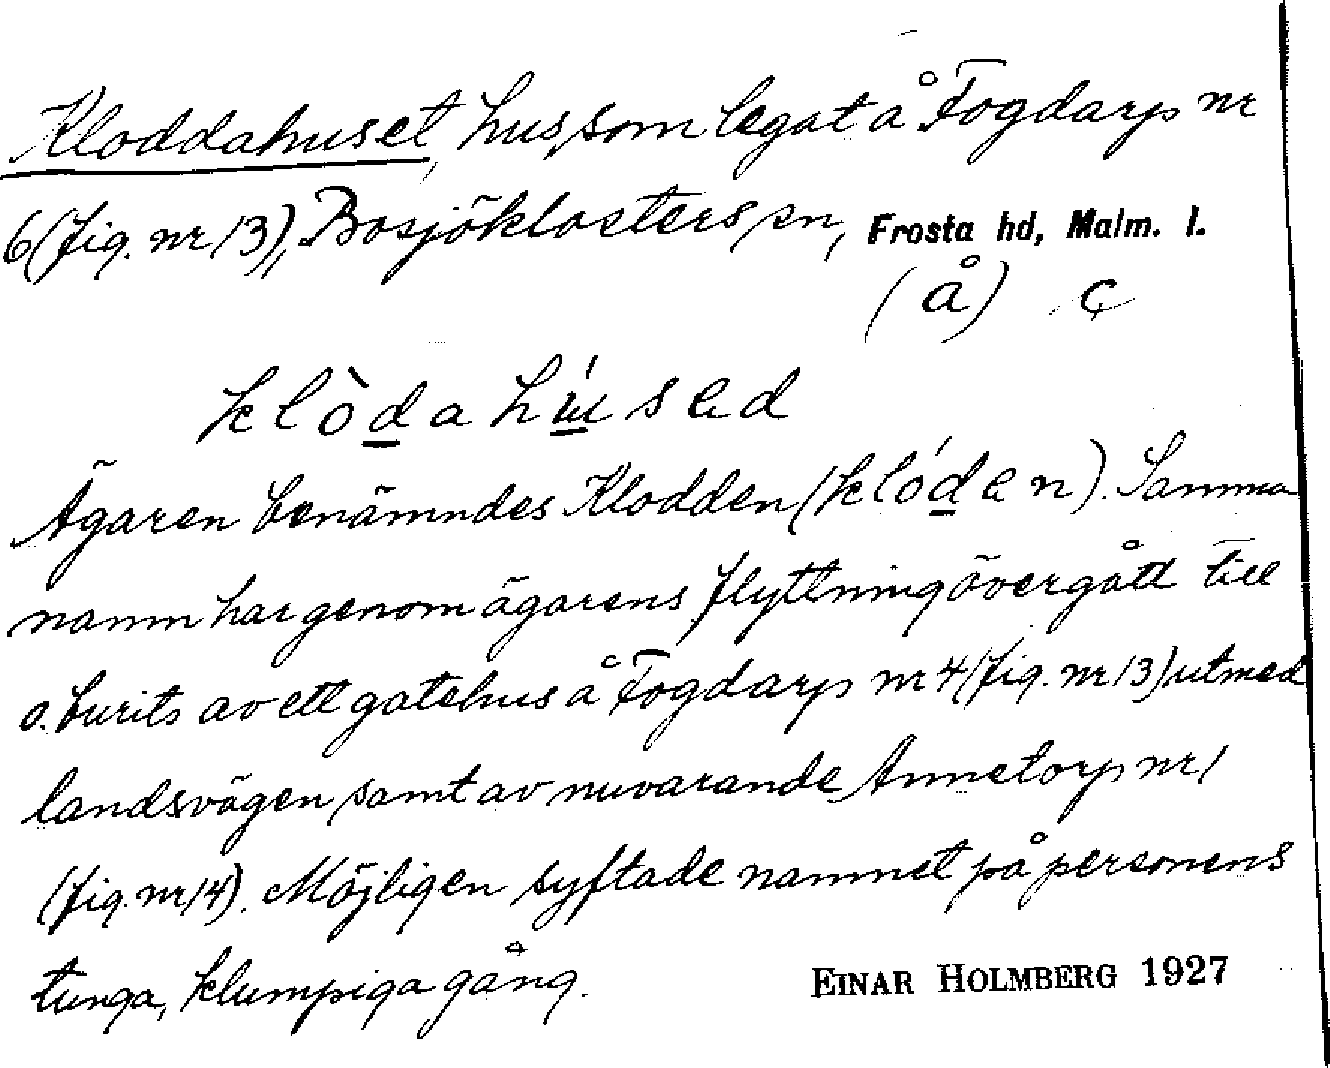 Kloddahuset, hus, som legat å Fogdarp nr
6 (fig. nr 13), Bosjöklosters sn, Frosta hd, Malm. l.
(å) ç
klòdahúsed
Ägaren benämndes Klodden (klóden). Samma
namn har genom ägarens flyttning övergått till
o. burits av ett gatehus å Fogdarp nr 4 (fig. nr 13) utmed
landsvägen samt av nuvarande Annetorp nr 1
(fig. nr 14). Möjligen syftade namnet på personens
tunga, klumpiga gång.
EINAR HOLMBERG 1927